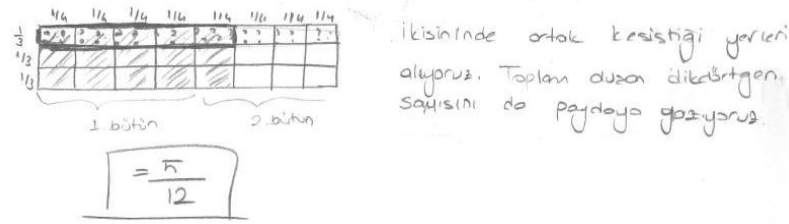 1/4 1/4 1/4 1/4 1/4 1/4 1/4 1/4
1/3
1/3
1/3
1 bütün
2 bütün
= 5/12
ikisininde ortak kesiştiği yerleri
alıyoruz. Toplam duzan dikdörtgen
sayısını da paydaya yazıyoruz.